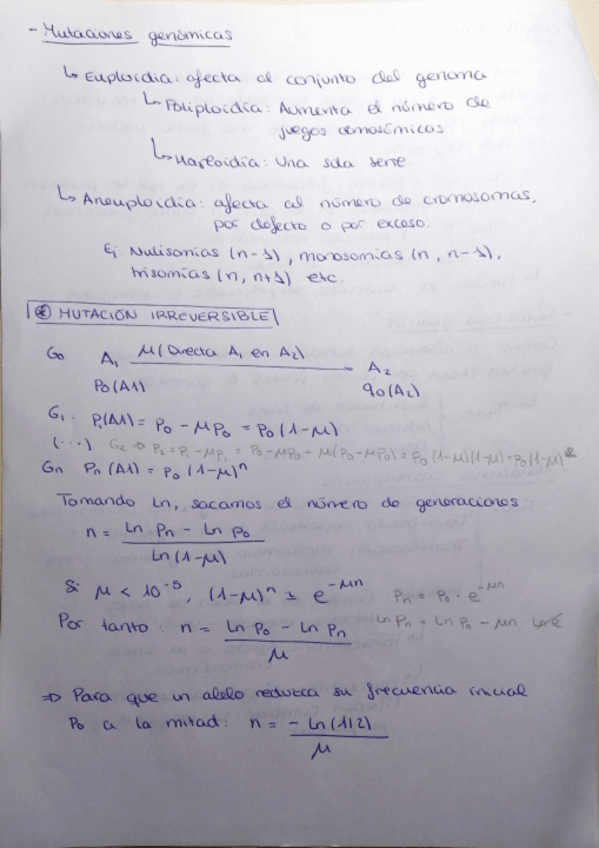 - Mutaciones genómicas
↳ Euploidía: afecta al conjunto del genoma
↳ Poliploidía: Aumenta el número de
juegos comosómicos
↳ Haploidía: Una sola serie
↳ Aneuploidía: afecta al número de cromosomas,
por defecto o por exceso.
Ej Nulisomías (n-1), monosomías (n, n-1),
trisomías (n, n+1) etc.
* MUTACIÓN IRREVERSIBLE
G0 A1 μ(Directa A1 en A2) → A2
P0(A1) q0(A2)
G1: P1(A1) = P0 - μP0 = P0(1-μ)
(...) G2 ⇒ P2 = P1 - μP1 = P0 - μP0 - μ(P0 - μP0) = P0(1-μ)(1-μ) = P0(1-μ)²
Gn Pn(A1) = P0(1-μ)^n
Tomando Ln, sacamos el número de generaciones
n = (Ln Pn - Ln P0) / Ln(1-μ)
Si μ < 10^-5, (1-μ)^n ≃ e^-μn Pn = P0 · e^-μn
Por tanto: n = (Ln P0 - Ln Pn) / μ Ln Pn = Ln P0 - μn Ln e
⇒ Para que un alelo reduzca su frecuencia inicial
P0 a la mitad: n = - Ln(1/2) / μ